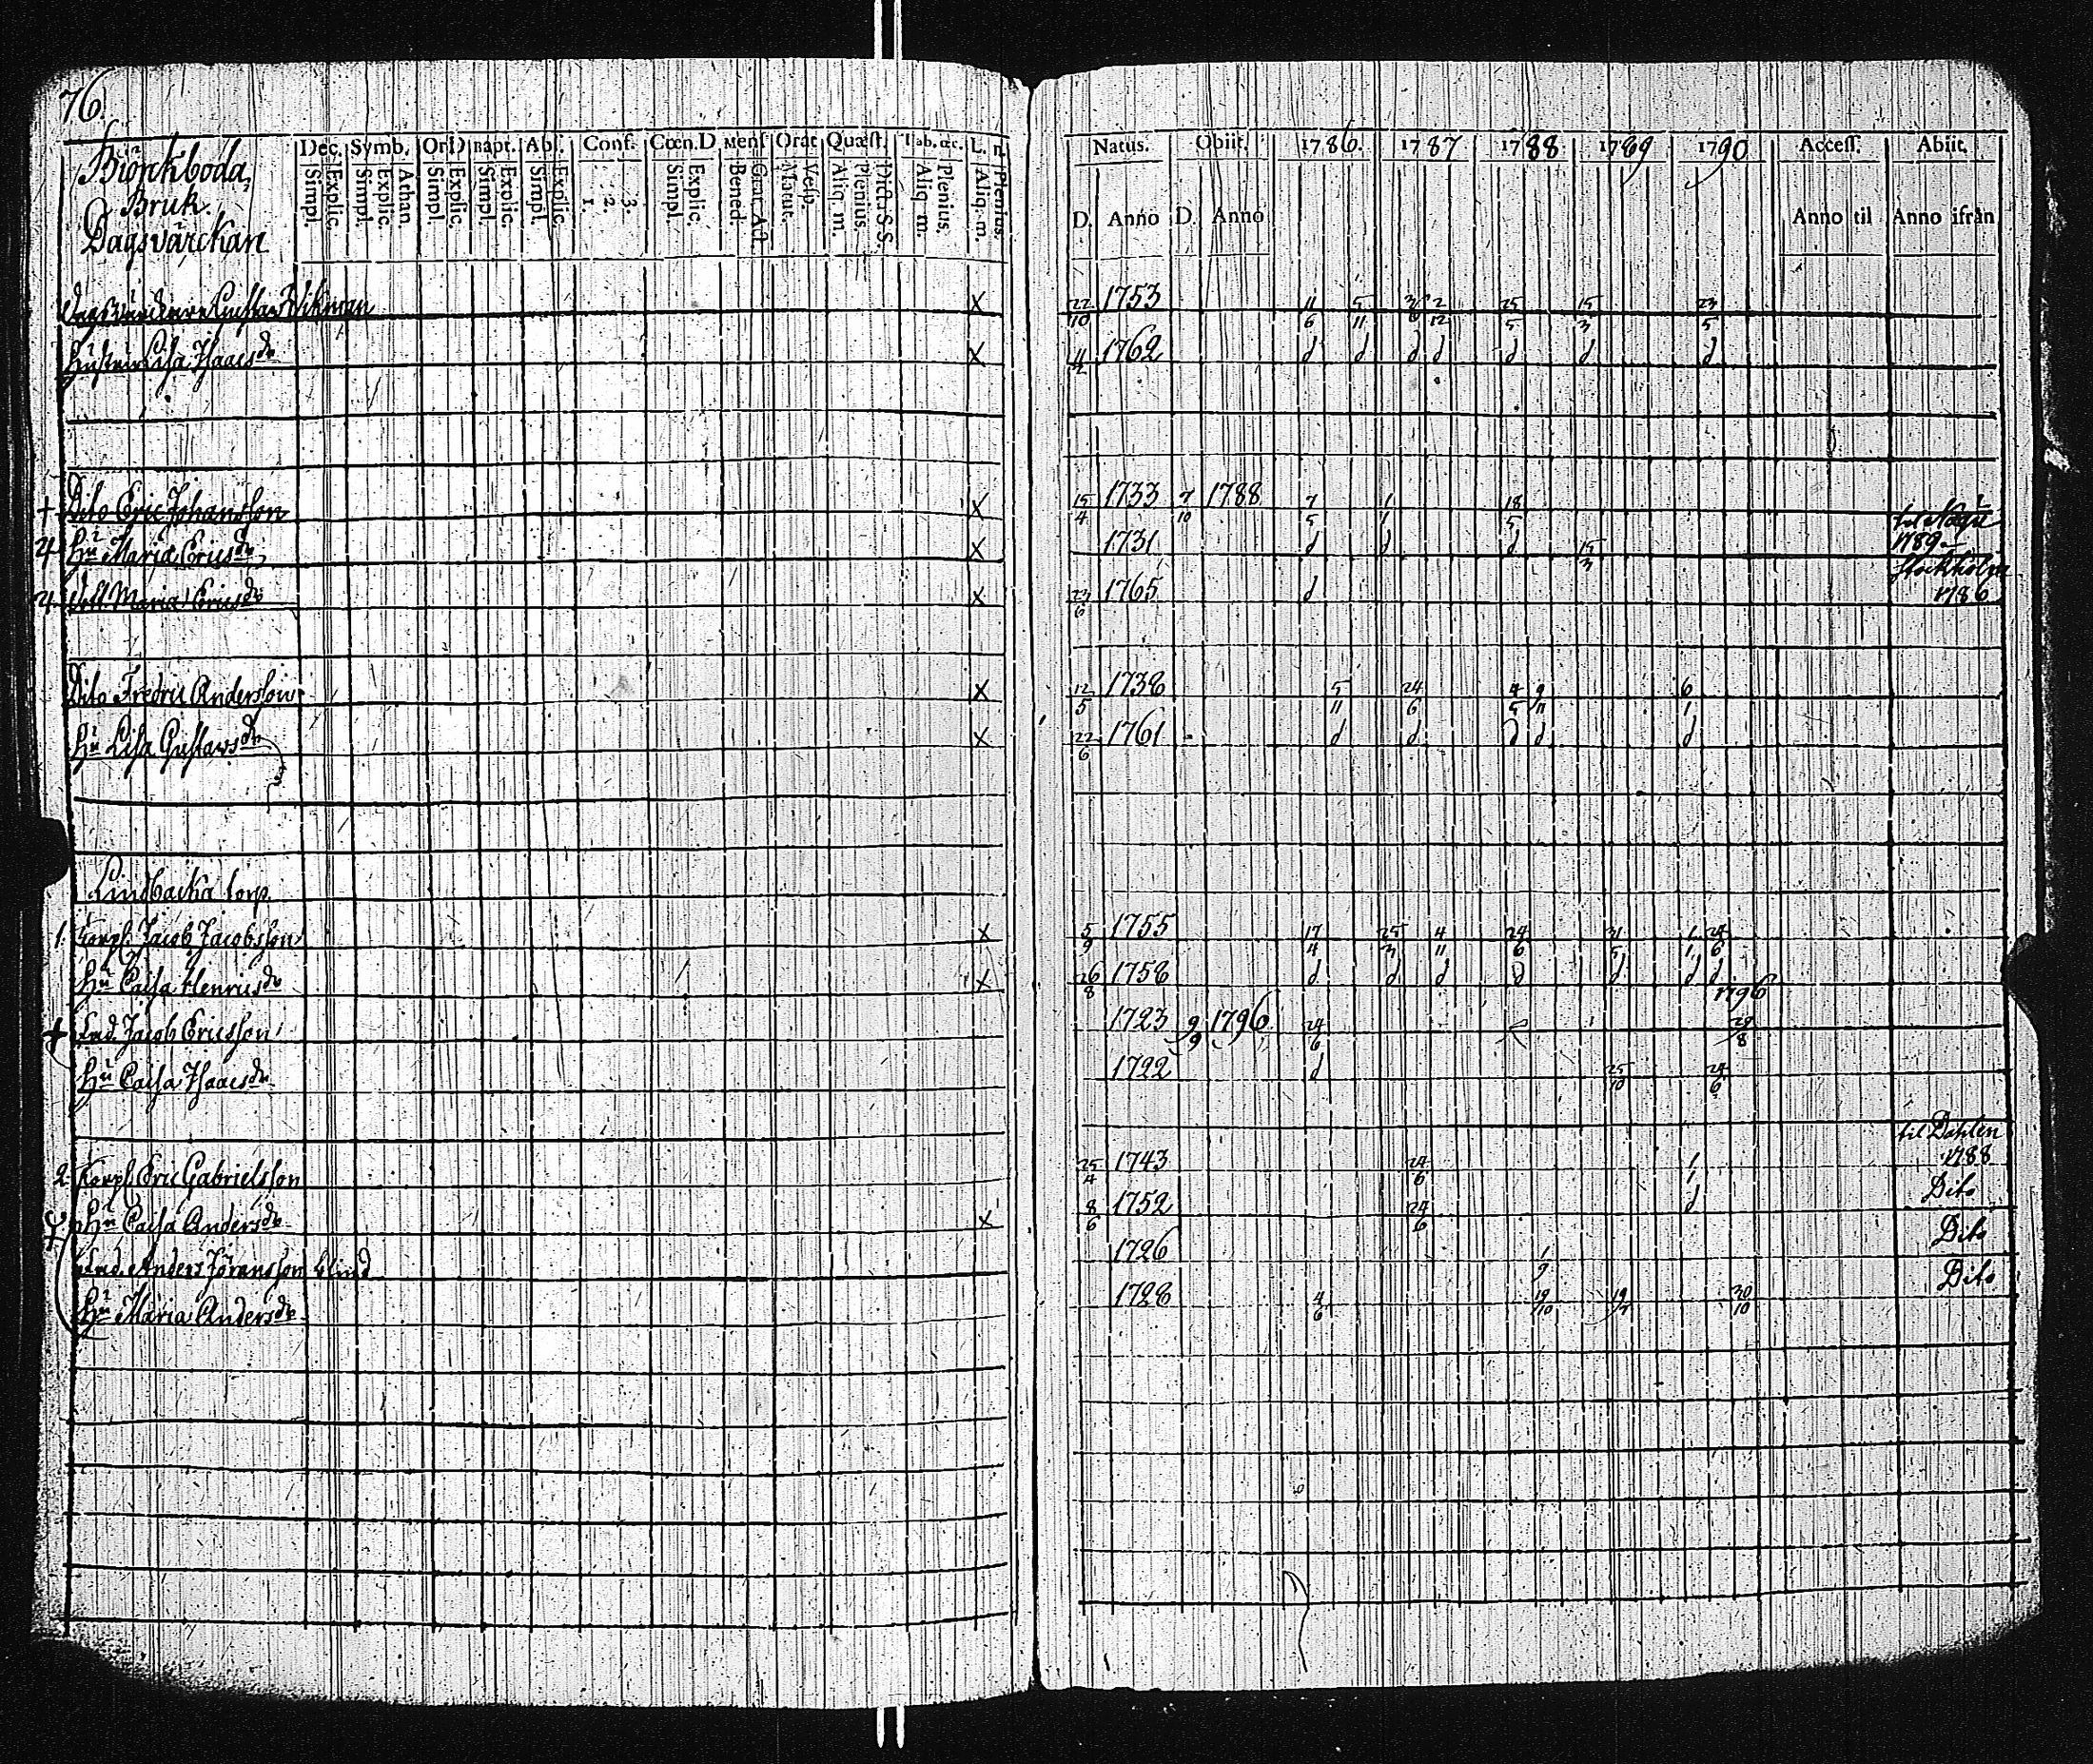 76.
Biörkboda
Bruk.
Dagsvärckan
Dec. Symb. Or.D Bapt. Abs. Conf. Cœn.D Mens Orat Quæst. Tab. œc. L. n.
Simpl. Explic. Simpl. Explic. Athan. Simpl. Explic. Simpl. Explic. Simpl. Explic. 1. 2. 3. Simpl. Explic. Bened. Grat. Act. Matut. Vesp. Aliq. m. Plenius. Dict. S.S. Aliq. m. Plenius. Aliq. m. Plenius.
Natus. Obiit. 1786. 1787 1788 1789 1790 Access. Abiit.
D. Anno D. Anno Anno til Anno ifrån
Gustav Wikman X 22/10 1753 11/6 5/11 2/12 25/5 15/3 23/5
Hustrun Lisa Isaacsdr X 1762 d d d d d d d
+ Dito Eric Johansson X 15/4 1733 7/10 1788 7/5 1/1 18/5
Hu Maria Ericsdr X 1731 d d d 15/3 til Nagu 1789
Dott. Maria Ericsdr X 23/6 1765 d Stockholm 1786
Dito Fredric Andersson X 12/5 1738 5/11 24/6 4/5 9/11 6/1
Hu Lisa Gustavsdr X 22/6 1761 d d d d d
Lindbacka torp.
1. Torp. Jacob Jacobsson X 5/9 1755 17/4 25/3 4/11 24/6 31/5 1/1 24/6
Hu Caisa Henricsdr X 26/8 1758 d d d d d d d
1796
+ Jacob Ericsson 1723 9/9 1796 24/6 29/8
Hu Caisa Isaacsdr 1722 d 25/10 24/6
til Dahlen
2. Torp. Eric Gabrielsson 25/4 1743 24/6 1/1 1788
Hu Caisa Andersdr X 8/6 1752 24/6 d Dito
Anders Göransson blind 1726 Dito
Hu Maria Andersdr 1728 4/6 19/10 20/10 Dito